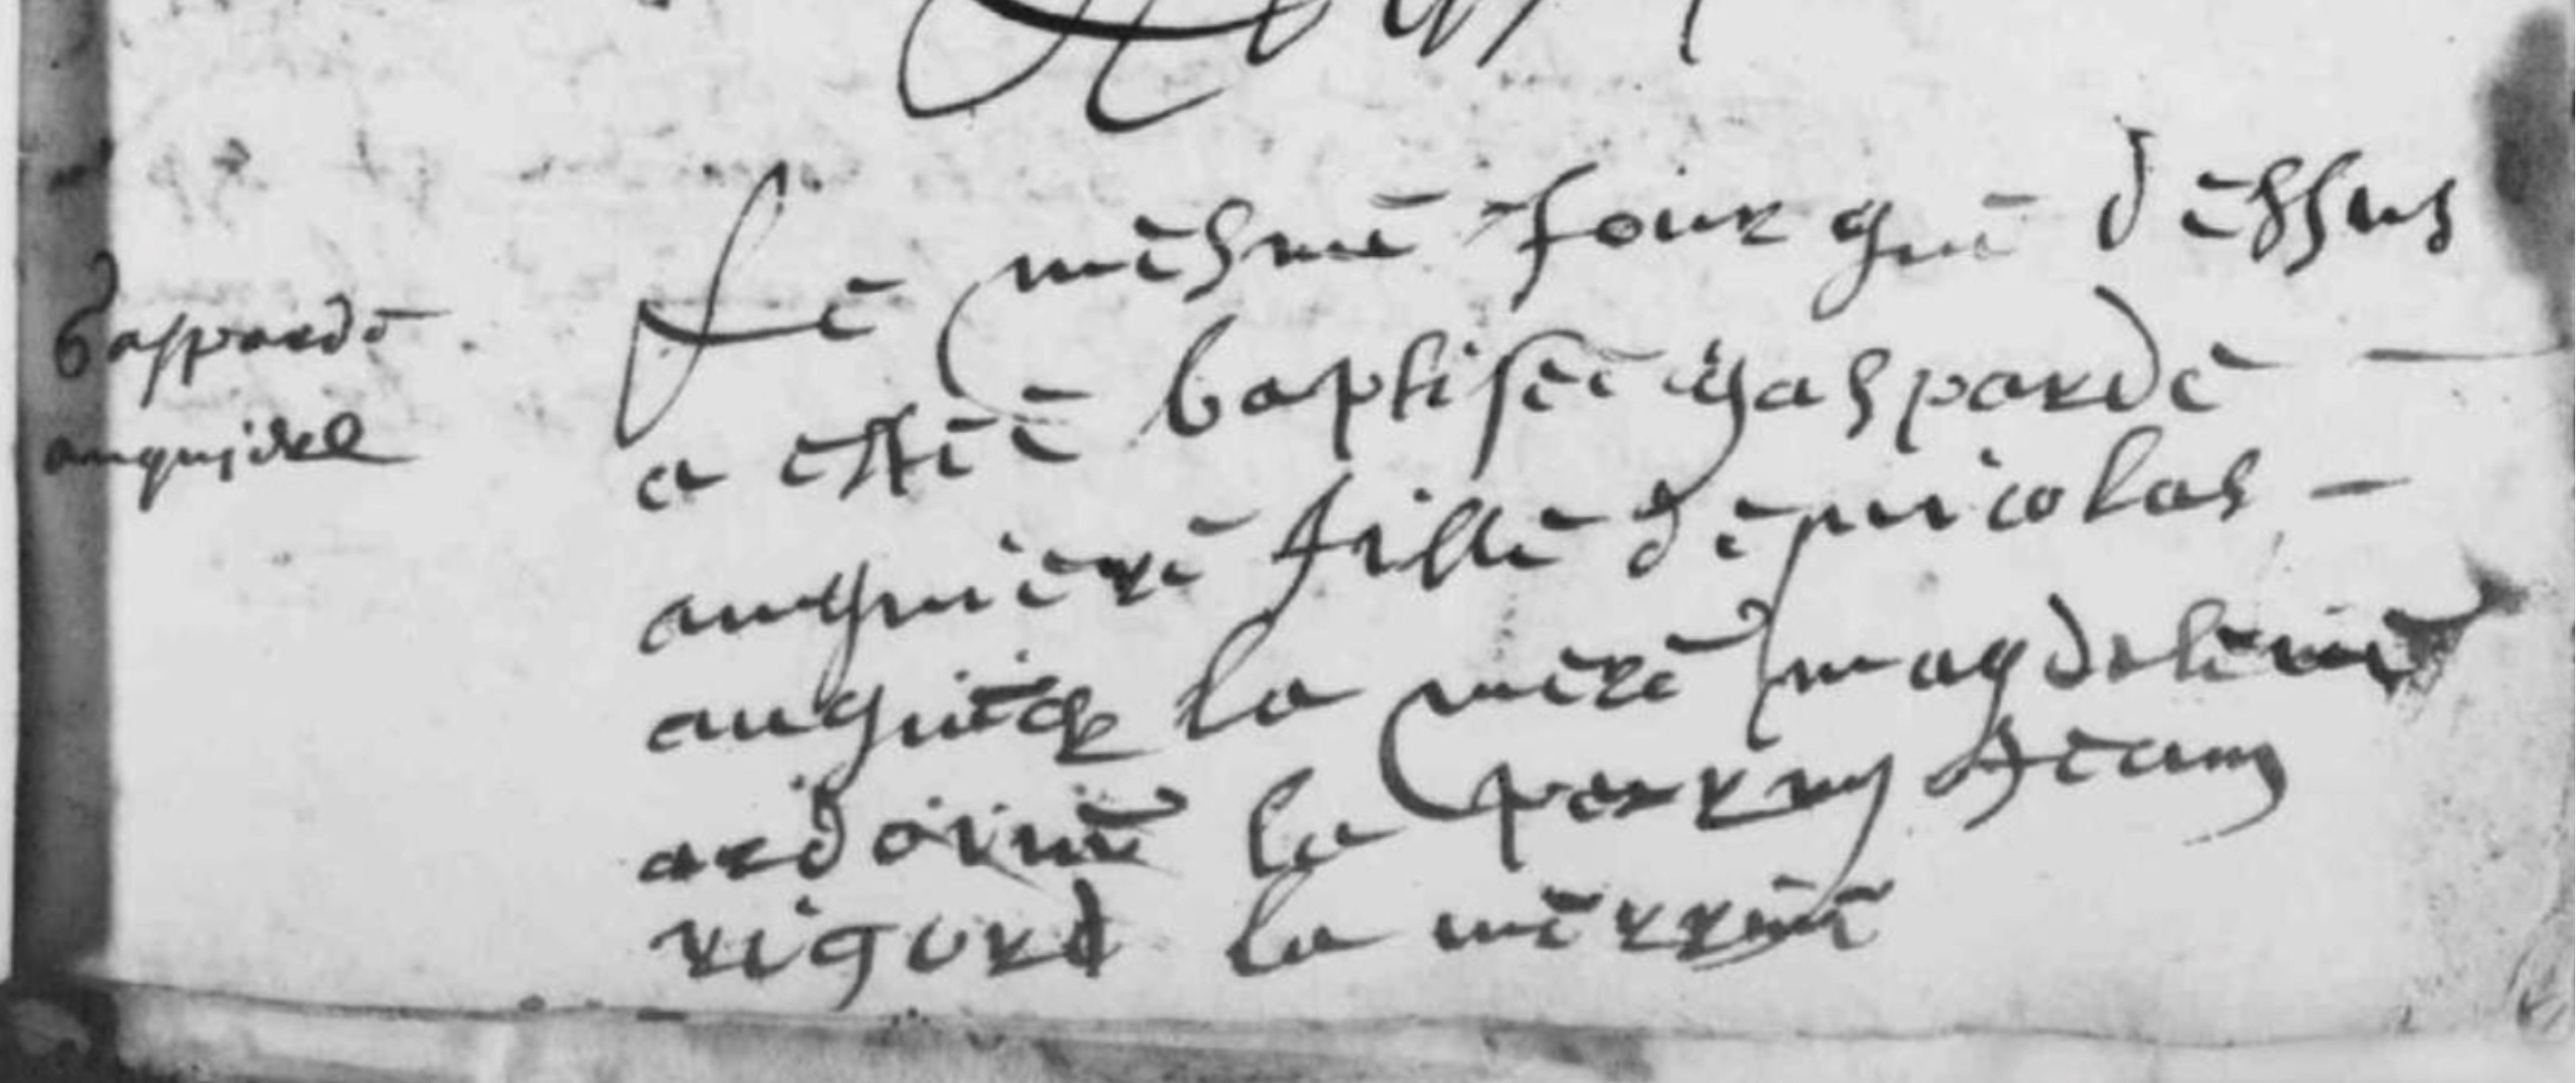 Gasparde
Le mesme jour que dessus
a estée baptisée gasparde
auquiere fille de nicolas
auquier la mere magdelene
ardoine le parrin Jean
rigord la merrine